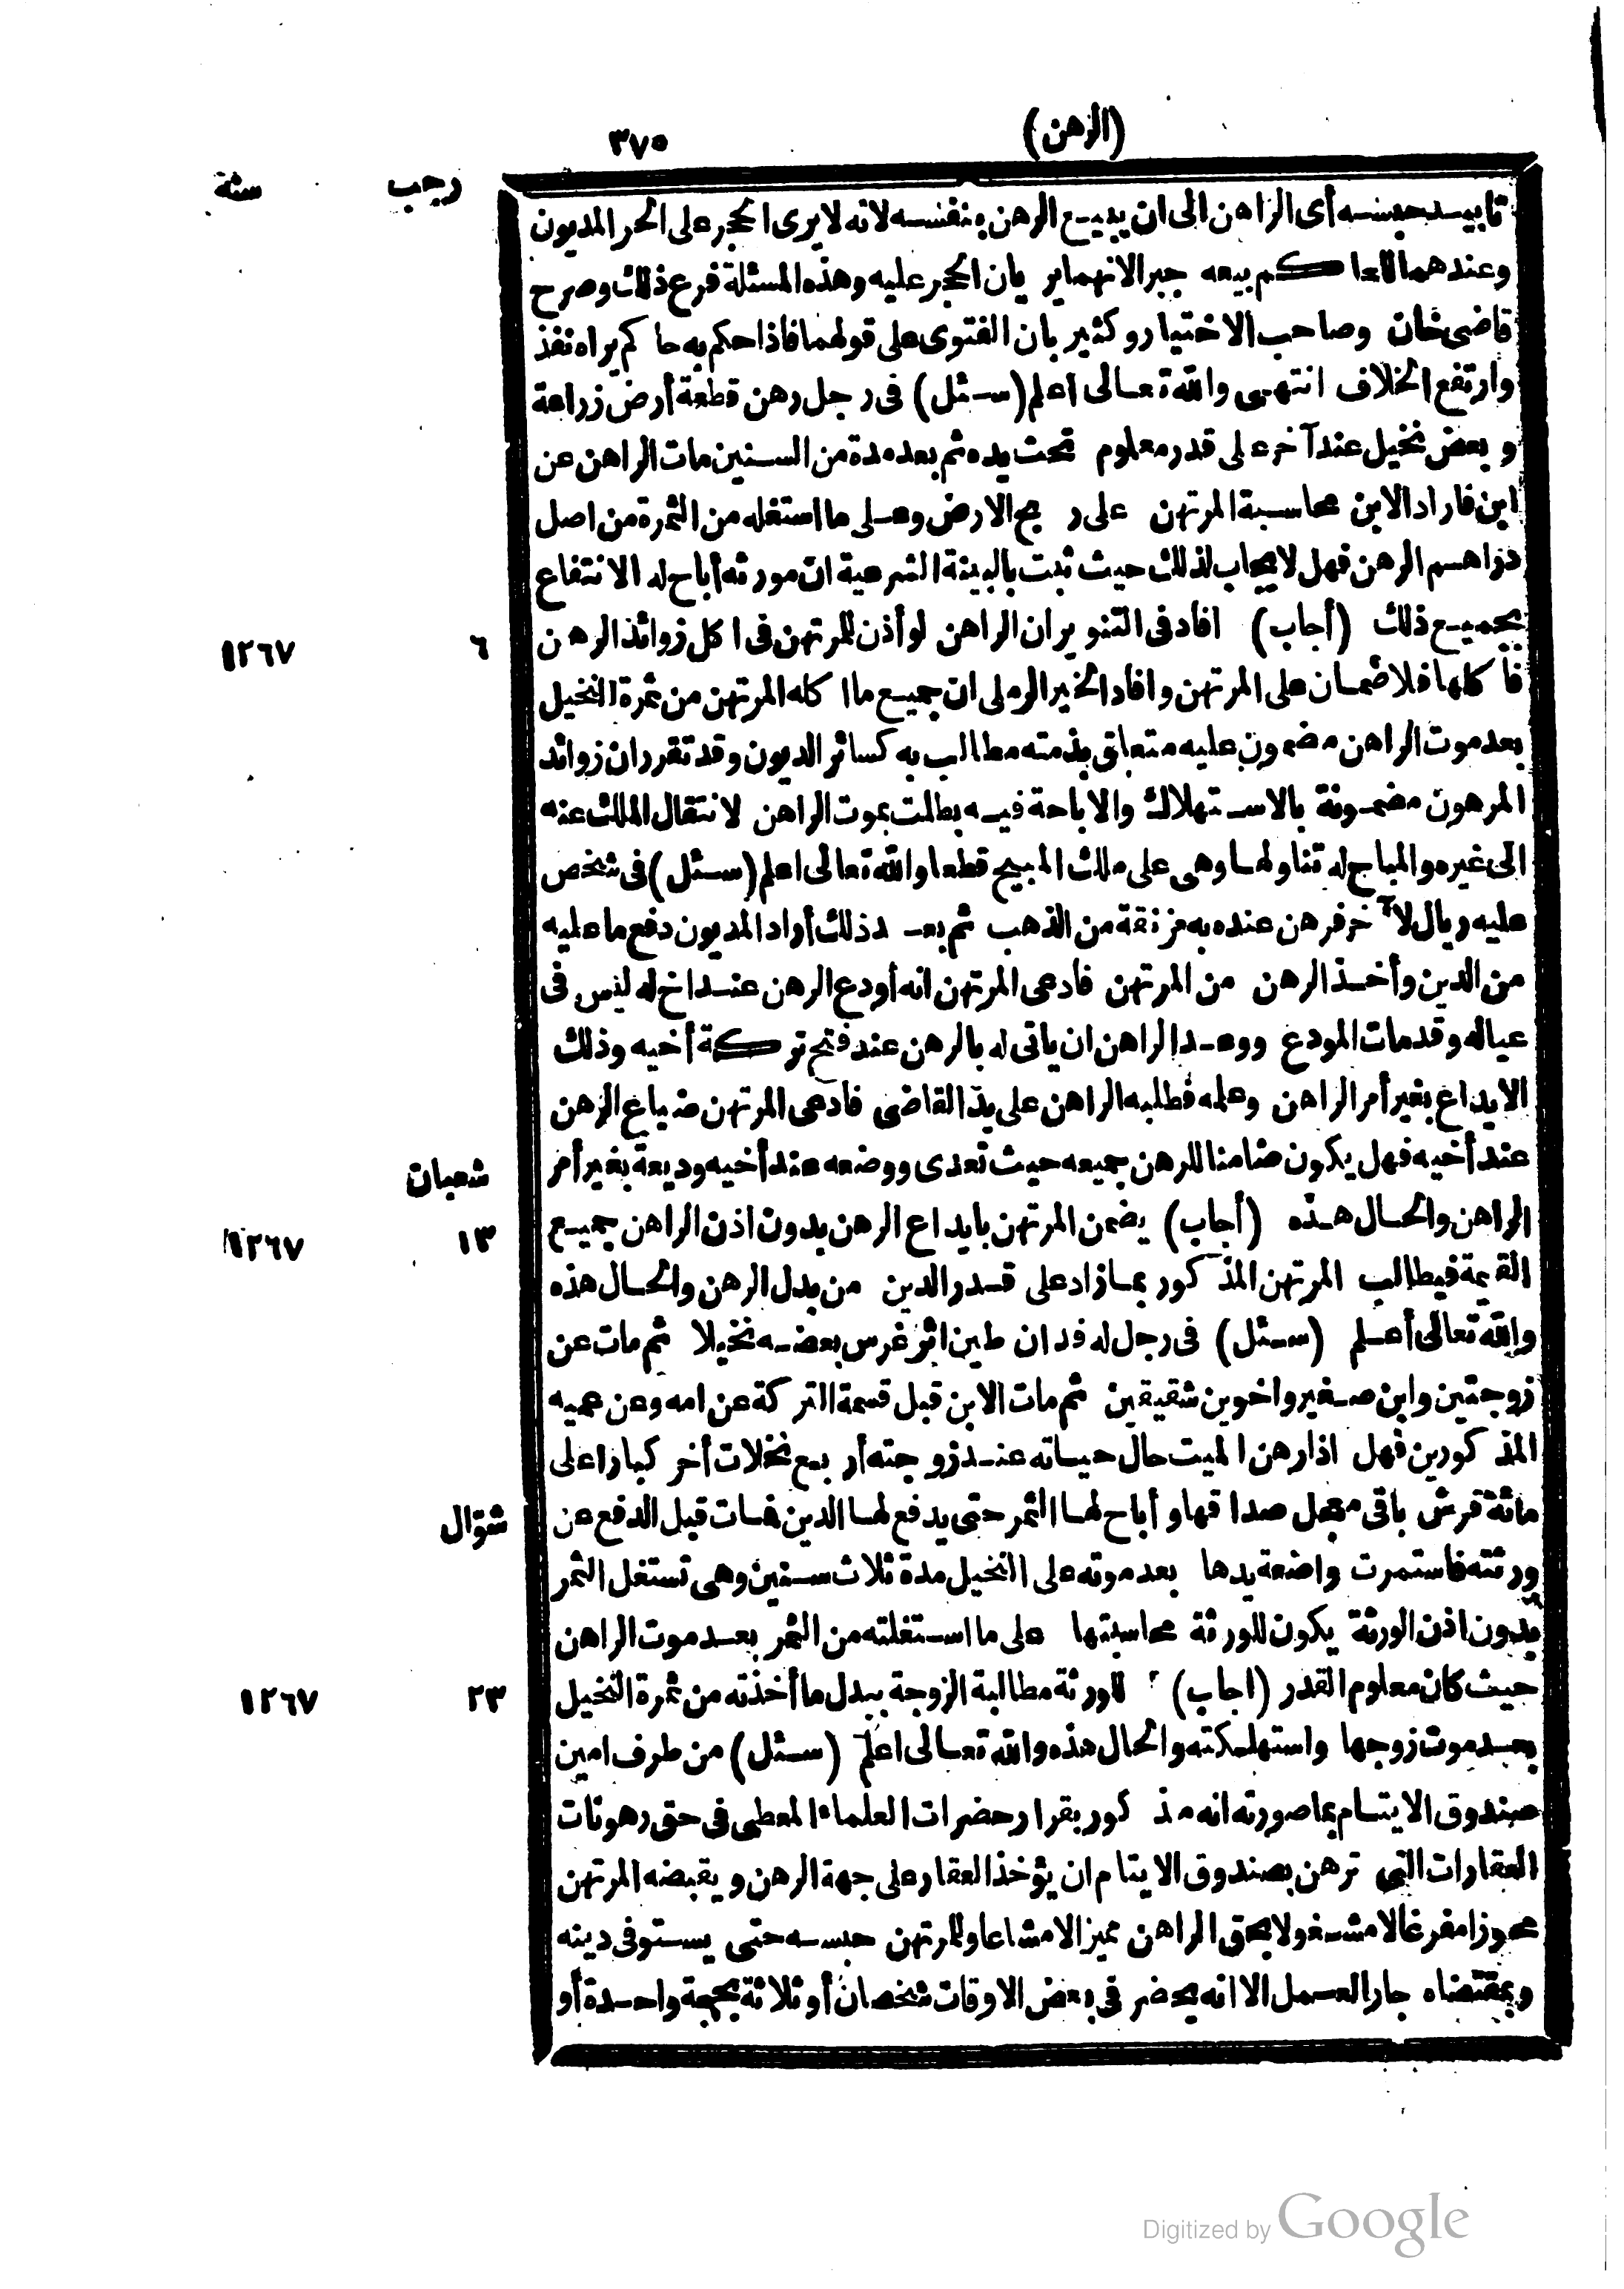 (الرهن) ٣٧٥
رجب سنة
تأبيد حبسه أى الراهن الى ان يبيع الرهن بنفسه لانه لا يرى الحجر على الحر المديون
وعندهما للحاكم بيعه جبرا لانهما يريان الحجر عليه وهذه المسئلة فرع ذلك وصرح
قاضى خان وصاحب الاختيار وكثير بان الفتوى على قولهما فاذا حكم به حاكم يراه نفذ
وارتفع الخلاف انتهى والله تعالى اعلم (سئل) فى رجل رهن قطعة أرض زراعة
وبعض نخيل عند آخر على قدر معلوم تحت يده ثم بعد مدة من السنين مات الراهن عن
ابن فاراد الابن محاسبة المرتهن على ريع الارض وعلى ما استغله من الثمرة من اصل
دراهم الرهن فهل لا يجاب لذلك حيث ثبت بالبينة الشرعية ان مورثه أباح له الانتفاع
بجميع ذلك (أجاب) افاد فى التنوير ان الراهن لو أذن للمرتهن فى اكل زوائد الرهن ٦ ١٢٦٧
فاكلها فلا ضمان على المرتهن وافاد الخير الرملى ان جميع ما اكله المرتهن من ثمرة النخيل
بعد موت الراهن مضمون عليه متعلق بذمته مطالب به كسائر الديون وقد تقرر ان زوائد
المرهون مضمونة بالاستهلاك والاباحة فيه بطلت بموت الراهن لانتقال الملك عنه
الى غيره والمباح له تناولها وهى على ملك المبيح قطعا والله تعالى اعلم (سئل) فى شخص
عليه ريال لآخر فرهن عنده به مزنقة من الذهب ثم بعد ذلك أراد المديون دفع ما عليه
من الدين وأخذ الرهن من المرتهن فادعى المرتهن انه أودع الرهن عند اخ له ليس فى
عياله وقد مات المودع ووعد الراهن ان ياتى له بالرهن عند فتح تركة أخيه وذلك
الايداع بغير أمر الراهن وعلمه فطلبه الراهن على يد القاضى فادعى المرتهن ضياع الرهن
عند أخيه فهل يكون ضامنا للرهن جميعه حيث تعدى ووضعه عند أخيه وديعة بغير أمر شعبان
الراهن والحال هذه (أجاب) يضمن المرتهن بايداع الرهن بدون اذن الراهن جميع ١٣ ١٢٦٧
القيمة فيطالب المرتهن المذكور بما زاد على قدر الدين من بدل الرهن والحال هذه
والله تعالى أعلم (سئل) فى رجل له فدان طين اثر غرس بعضه نخيلا ثم مات عن
زوجتين وابن صغير واخوين شقيقين ثم مات الابن قبل قسمة التركة عن امه وعن عميه
المذكورين فهل اذا رهن الميت حال حياته عند زوجته أربع نخلات أخر كبارا على
مائة قرش باقى معجل صداقها وأباح لها الثمر حتى يدفع لها الدين فمات قبل الدفع عن شوّال
ورثته فاستمرت واضعة يدها بعد موته على النخيل مدة ثلاث سنين وهى تستغل الثمر
بدون اذن الورثة يكون للورثة محاسبتها على ما استغلته من الثمر بعد موت الراهن
حيث كان معلوم القدر (اجاب) للورثة مطالبة الزوجة ببدل ما أخذته من ثمرة النخيل ٢٣ ١٢٦٧
بعد موت زوجها واستهلكته والحال هذه والله تعالى اعلم (سئل) من طرف امين
صندوق الايتام بما صورته انه مذكور بقرار حضرات العلماء المعطى فى حق رهونات
العقارات التى ترهن بصندوق الايتام ان يؤخذ العقار على جهة الرهن ويقبضه المرتهن
محوزا مفرغا لا مشغولا بحق الراهن مميزا لا مشاعا وللمرتهن حبسه حتى يستوفى دينه
وبمقتضاه جار العمل الا انه يحضر فى بعض الاوقات شخصان أو ثلاثة بحجة واحدة أو
Digitized by Google